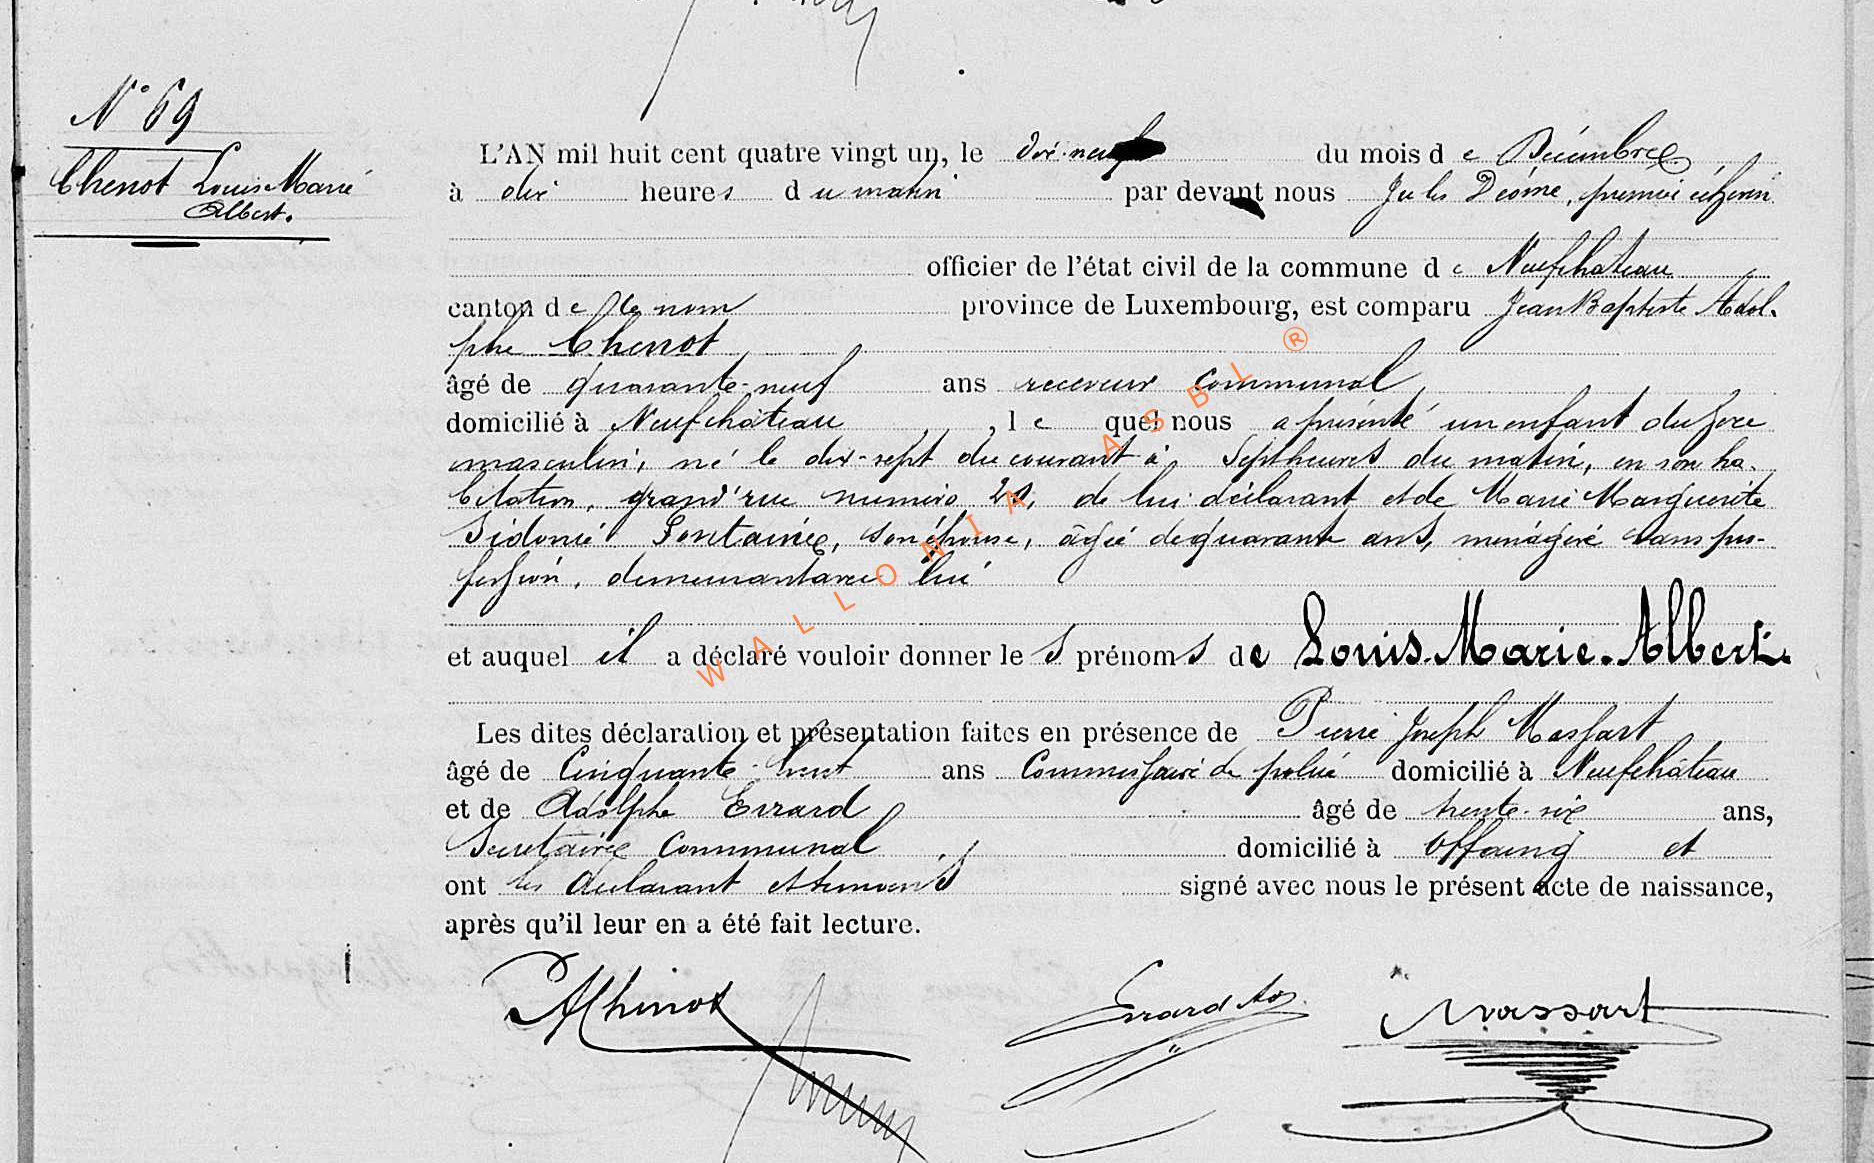 N° 69
Chenot Louis Marie
Albert.
L'AN mil huit cent quatre vingt un, le dix-neuf du mois de Décembre
à dix heures du matin par devant nous Jules Déome, premier échevin
officier de l'état civil de la commune de Neufchâteau
canton de ce nom province de Luxembourg, est comparu Jean Baptiste Adol-
phe Chenot
âgé de quarante-neuf ans receveur communal
domicilié à Neufchâteau, lequel nous a présenté un enfant du sexe
masculin, né le dix-sept du courant à Sept heures du matin, en son ha-
bitation, grand'rue numéro, de lui déclarant et de Marie Marguerite
Sidonie Fontaine, son épouse, âgée de quarante ans, ménagère sans pro-
fession, demeurant avec lui
et auquel il a déclaré vouloir donner les prénoms de Louis-Marie-Albert.
Les dites déclaration et présentation faites en présence de Pierre Joseph Massart
âgé de Cinquante-huit ans Commissaire de police domicilié à Neufchâteau
et de Adolphe Errard âgé de trente-six ans,
Secrétaire Communal domicilié à Offaing et
ont les déclarant et témoins signé avec nous le présent acte de naissance,
après qu'il leur en a été fait lecture.
AChenot Errard Ad. Massart
WALLONIA ASBL ®